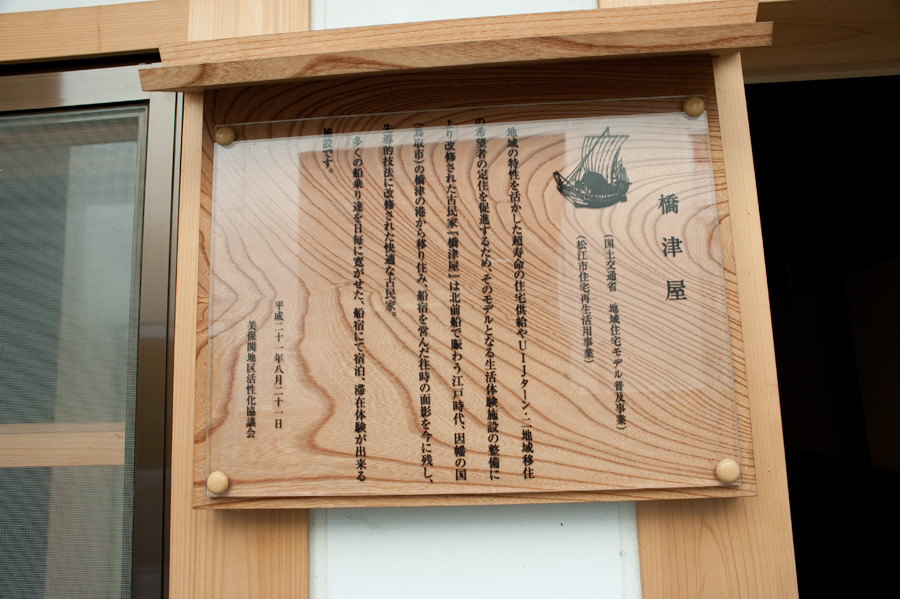 橋津屋
（国土交通省　地域住宅モデル普及事業）
（松江市住宅再生活用事業）
地域の特性を活かした超寿命の住宅供給やUIJターン・二地域移住
の希望者の定住を促進するため、そのモデルとなる生活体験施設の整備に
より改修された古民家『橋津屋』は北前船で賑わう江戸時代、因幡の国
（鳥取市）の橋津の港から移り住み、船宿を営んだ往時の面影を今に残し、
先導的技法に改修された快適な古民家。
多くの船乗り達を日毎に寛がせた、船宿にて宿泊、滞在体験が出来る
施設です。
平成二十一年八月二十一日
美保関地区活性化協議会